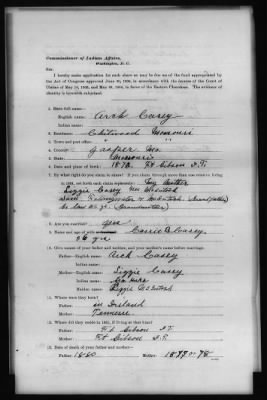 Commissioner of Indian Affairs,
Washington, D. C.
Sir:
I hereby make application for such share as may be due me of the fund appropriated by
the Act of Congress approved June 30, 1906, in accordance with the decree of the Court
of Claims of May 18, 1905, and May 28, 1906, in favor of the Eastern Cherokees. The evidence
of identity is herewith subjoined.
1. State full name—
English name: Arch Casey
Indian name:
2. Residence: Chitwood Missouri
3. Town and post office: "
4. County: Jasper Mo.
5. State: Missouri
6. Date and place of birth: Ft Gibson I.T.
7. By what right do you claim to share? If you claim through more than one relative living
in 1851, set forth each claim separately: My Mother
Lizzie Casey nee
(Grandmother)
8. Are you married? yes
9. Name and age of wife Carrie B Casey.
26 yrs
10. Give names of your father and mother, and your mother's name before marriage.
Father—English name: Arch Casey
Indian name:
Mother—English name: Lizzie Casey
Indian name:
Maiden name: Lizzie McIntosh
11. Where were they born?
Father: in Ireland
Mother: Tennessee
12. Where did they reside in 1851, if living at that time?
Father: Ft. Gibson I.T.
Mother: Ft. Gibson I.T.
13. Date of death of your father and mother—
Father: Mother: 1877 or 78